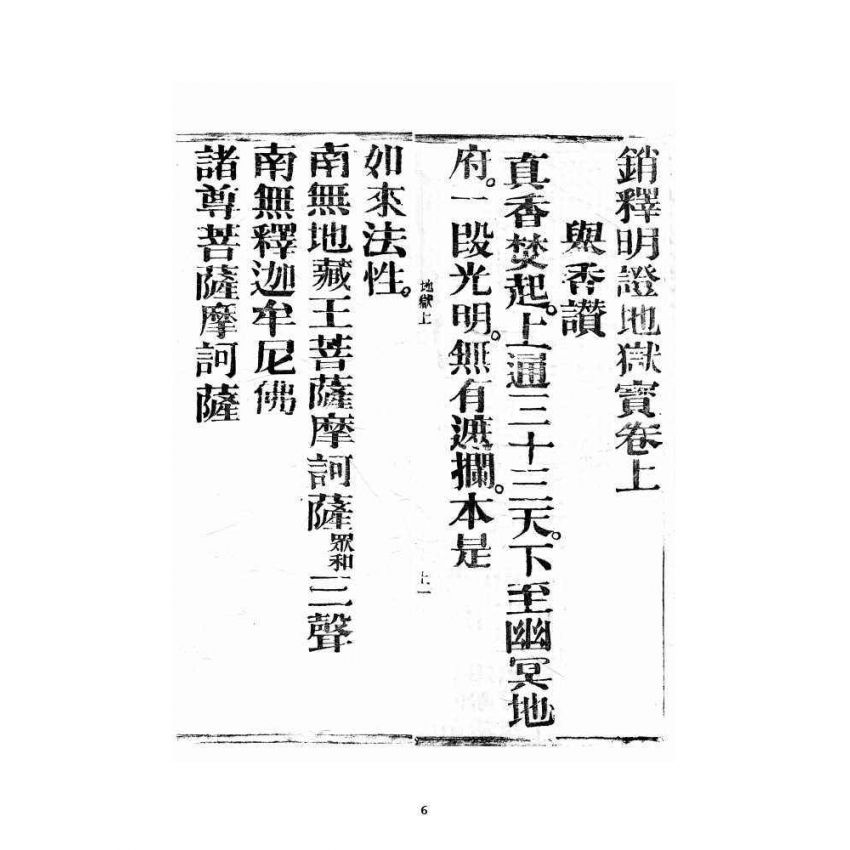 銷釋明證地獄寶卷上
舉香讃
真香焚起。上通三十三天。下至幽冥地
府。一段光明。無有遮攔。本是
地獄上
上一
如來法性。
南無地藏王菩薩摩訶薩眾和三聲
南無釋迦牟尼佛
諸尊菩薩摩訶薩
6